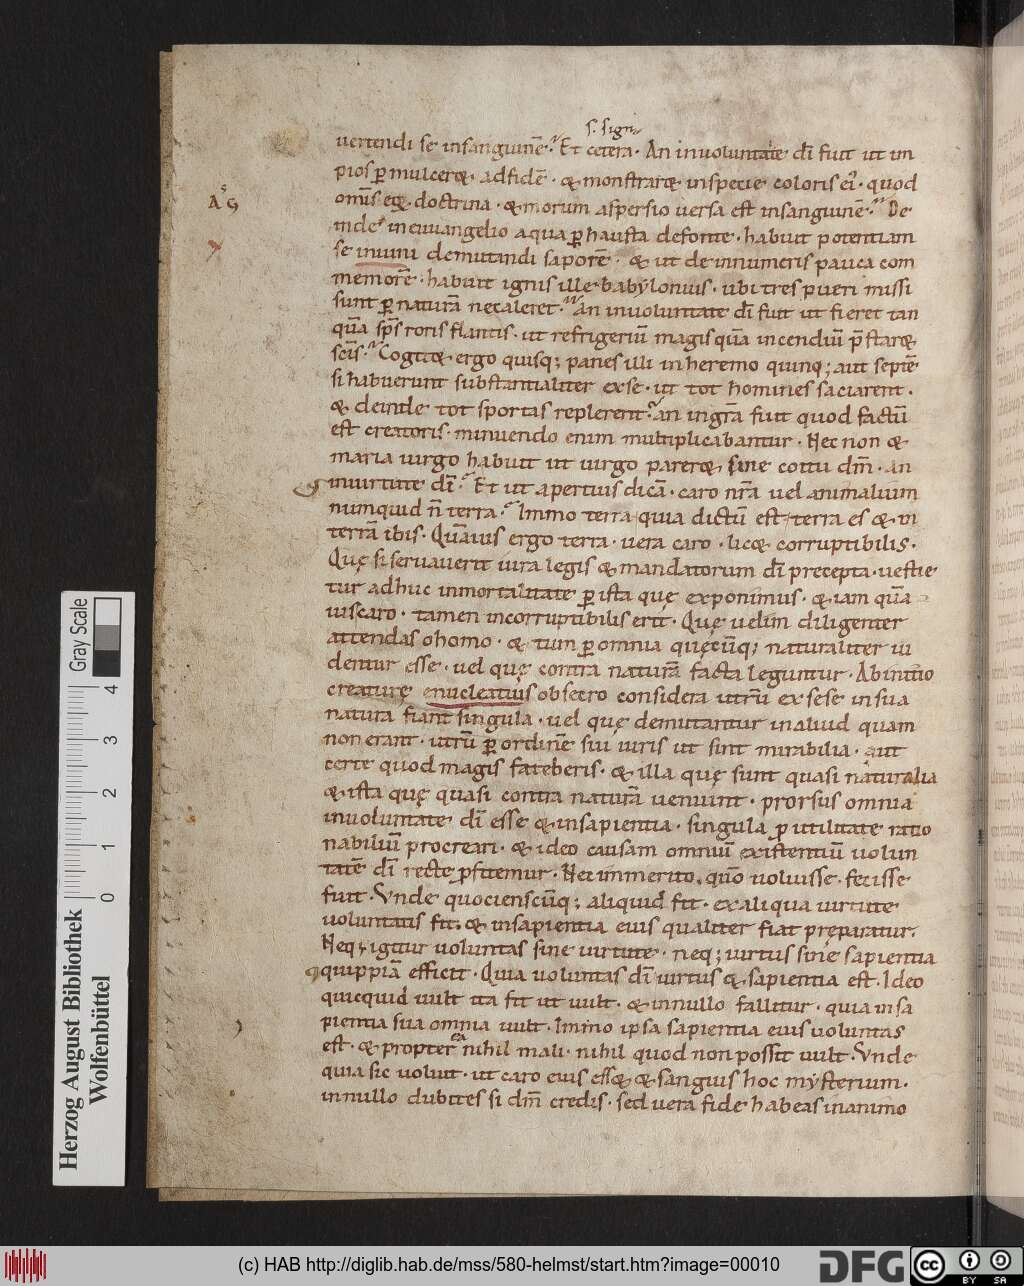 s. sign
uertendi se insanguinē. Et cetera. An inuoluntate dī fuit ut im
pios ꝑmulceret adfidē. & monstraret inspecie coloris ei. quod
omīs eę doctrina. & morum aspersio uersa est insanguinē. De
A G
inde in euuangelio aqua ꝑ hausta defonte. habuit potentiam
se inuini demutandi saporē. & ut de innumeris pauca com
memorē. habuit ignis ille babylonius. ubi tres pueri missi
sunt ꝑ naturā ne caleret. An inuoluntate dī fuit ut fieret tan
quā sp̄s roris flantis. ut refrigeriū magis quā incendiū p̄staret
sc̄is. Cogitet ergo quisq; panes illi in heremo quinq; aut septē
si habuerunt substantialiter ex se. ut tot homines saciarent.
& deinde tot sportas replerent. an in gr̄a fuit quod factū
est creatoris. minuendo enim multiplicabantur. Nec non &
maria uirgo habuit ut uirgo pareret sine coitu dm̄. an
inuirtute dī. Et ut apertius dicā. caro nr̄a uel animalium
numquid n̄ terra. Immo terra quia dictū est terra es & in
terrā ibis. Quāuis ergo terra. uera caro. licet corruptibilis.
Quę si seruauerit iura legis & mandatorum dī precepta. uestie
tur adhuc inmortalitate ꝑ ista quę exponimus. & iam quā
uis caro. tamen incorruptibilis erit. Quę uelim diligenter
attendas o homo. & tum ꝑ omnia quęcūq; naturaliter ui
dentur esse. uel quę contra naturā facta leguntur. Ab initio
creaturę enucleatius obsecro considera utrū ex sese in sua
natura fiant singula. uel quę demutantur in aliud quam
non erant. utrū ꝑ ordinē sui iuris ut sint mirabilia. aut
certe quod magis fateberis. & illa quę sunt quasi naturalia
& ista quę quasi contra naturā ueniunt. prorsus omnia
inuoluntate dī esse & insapientia. singula ꝓ utilitate ratio
nabiliū procreari. & ideo causam omniū existentiū uolun
tatē dī recte ꝓfitemur. Nec immerito. quō uoluisse. fecisse
fuit. Vnde quocienscūq; aliquid fit. ex aliqua uirtute
uoluntatis fit. & insapientia eius qualiter fiat pręparatur.
Neq; igitur uoluntas sine uirtute. neq; uirtus sine sapientia
quippiā efficit. Quia uoluntas dī uirtus & sapientia est. Ideo
quicquid uult ita fit ut uult. & in nullo fallitur. quia insa
pientia sua omnia uult. Immo ipsa sapientia eius uoluntas
est. & propter ea nihil mali. nihil quod non possit uult. Vnde
quia sic uoluit. ut caro eius esset & sanguis hoc mysterium.
in nullo dubites si dm̄ credis. sed uera fide habeas in animo
Gray Scale
4
3
2
1
0
Herzog August Bibliothek
Wolfenbüttel
(c) HAB http://diglib.hab.de/mss/580-helmst/start.htm?image=00010
DFG
cc
BY SA